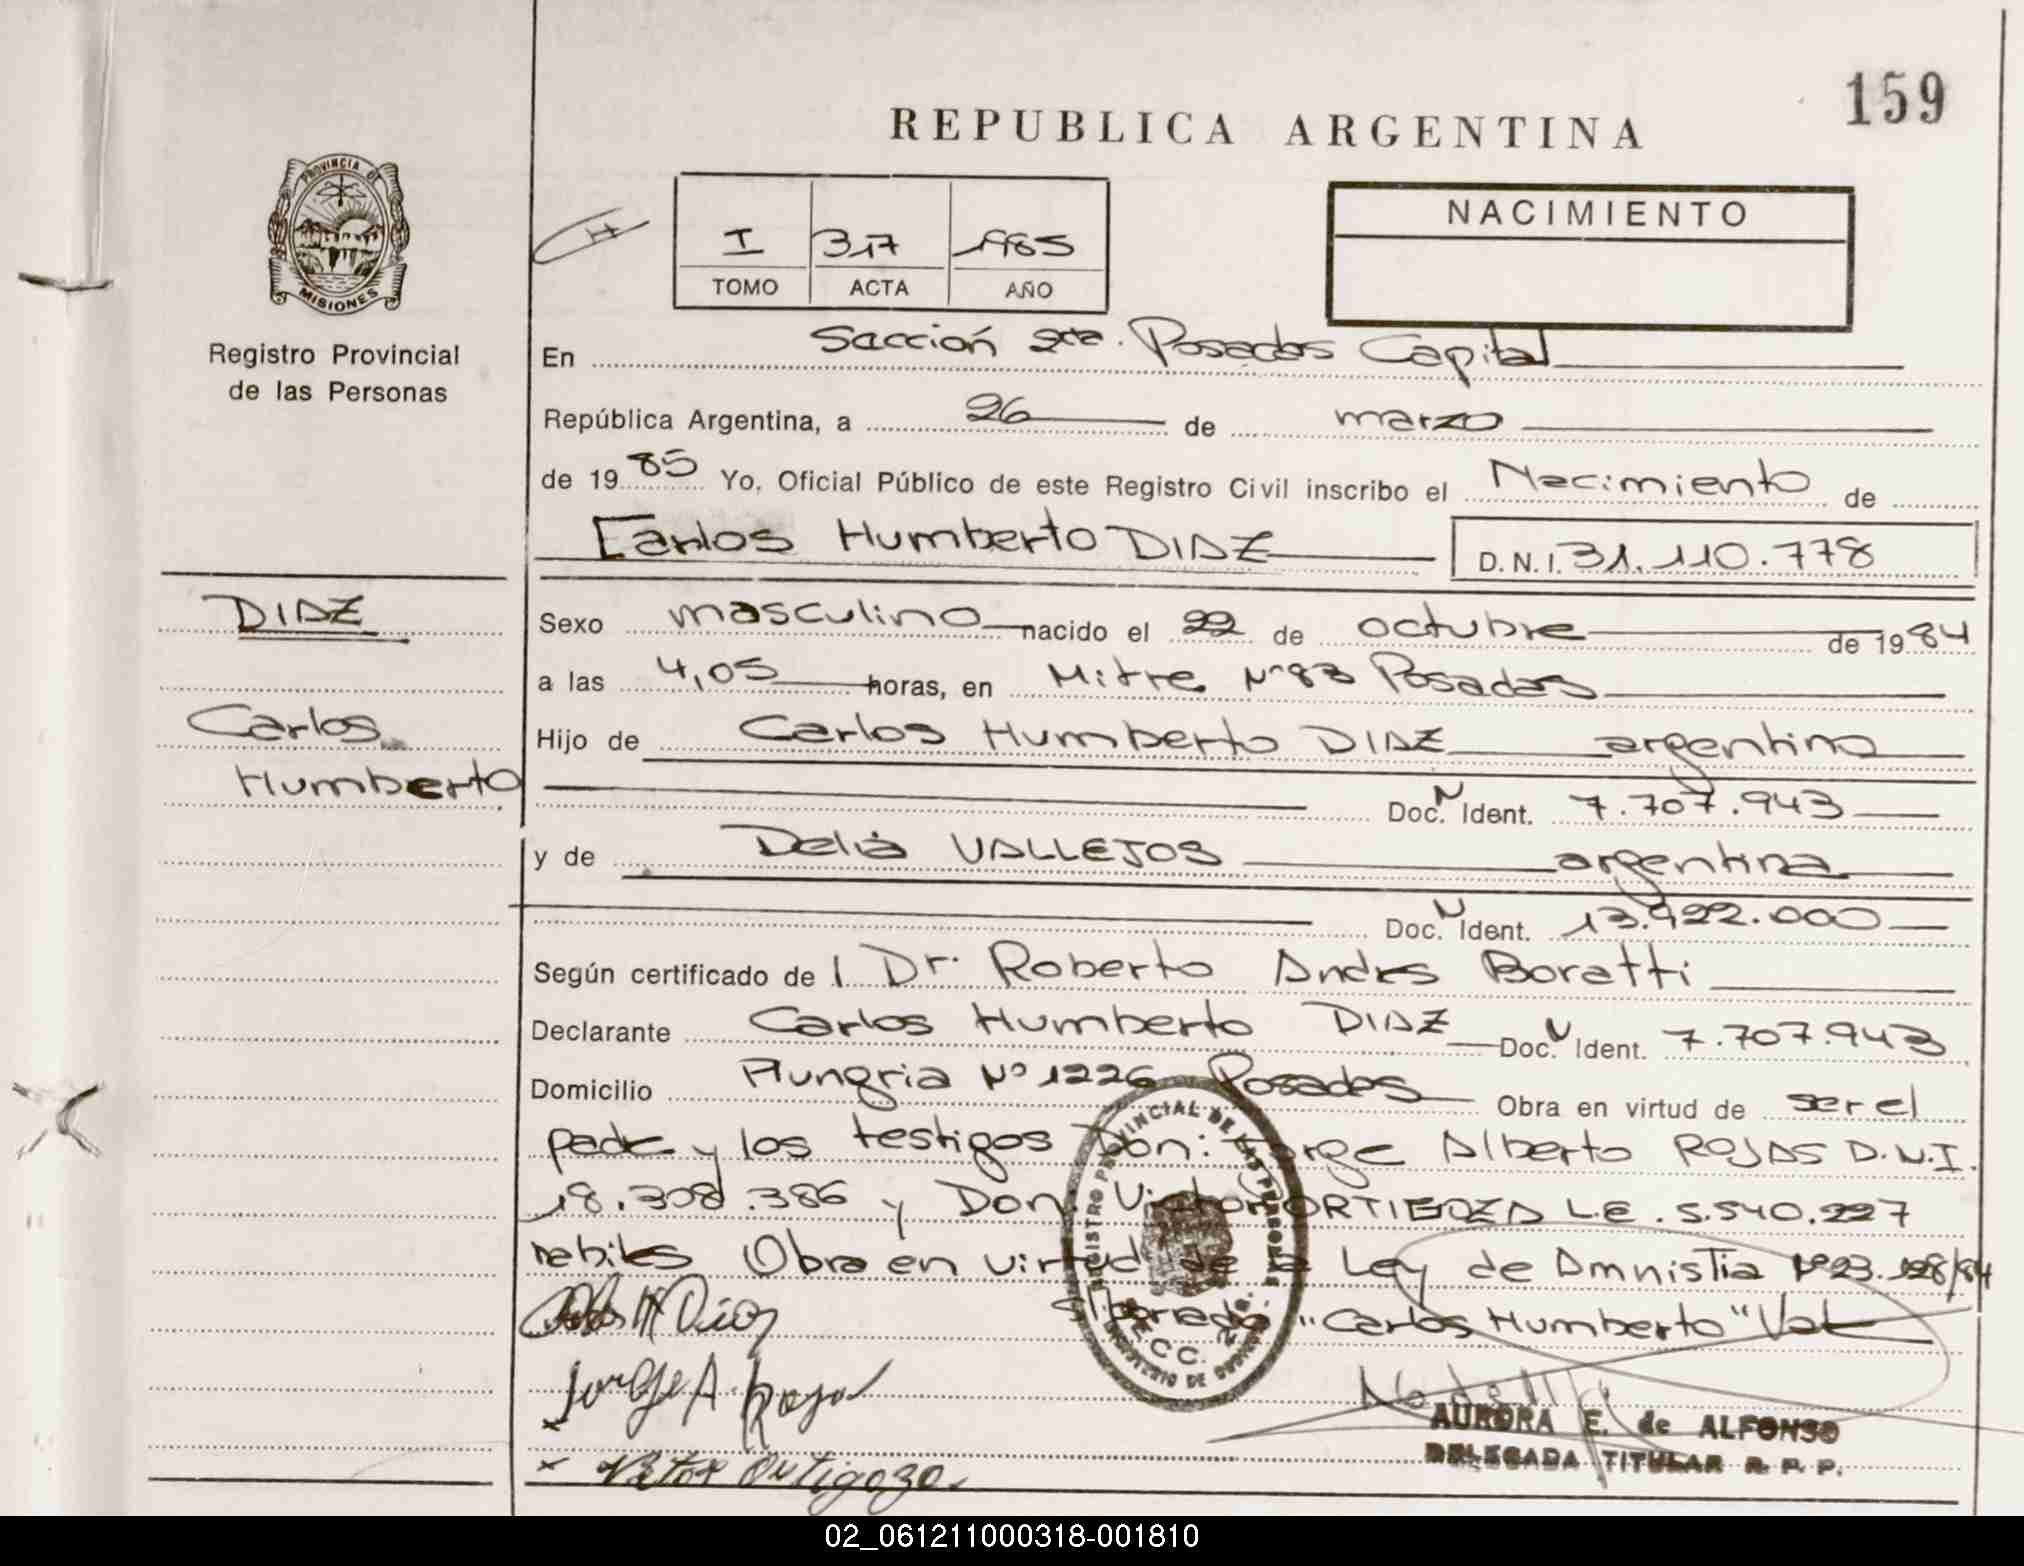 159
REPUBLICA ARGENTINA
PROVINCIA DE
MISIONES
Registro Provincial
de las Personas
H
I 317 1985
TOMO ACTA AÑO
NACIMIENTO
En Sección 2da. Posadas Capital
República Argentina, a 26 de marzo
de 1985 Yo, Oficial Público de este Registro Civil inscribo el Nacimiento de
Carlos Humberto DIAZ D.N.I. 31.110.778
DIAZ
Carlos
Humberto
Sexo masculino nacido el 22 de octubre de 1984
a las 4,05 horas, en Mitre Nº83 Posadas
Hijo de Carlos Humberto DIAZ argentino
Doc. N Ident. 7.707.943
y de Delia VALLEJOS argentina
Doc. N Ident. 13.422.000
Según certificado de l Dr. Roberto Andres Boratti
Declarante Carlos Humberto DIAZ Doc. N Ident. 7.707.943
Domicilio Hungria Nº 1226 Posadas Obra en virtud de ser el
padre y los testigos Don: Jorge Alberto ROJAS D.N.I.
18.308.386 y Don. Victor ORTIGOZA L.E. 5.540.227
habiles Obra en virtud de la Ley de Amnistia Nº23.128/84
"Carlos Humberto" Vale
REGISTRO PROVINCIAL DE LAS PERSONAS
MINISTERIO DE GOBIERNO
Carlos H Diaz
Jorge A. Rojas
x
x Victor Ortigoza
AURORA E. de ALFONSO
DELEGADA TITULAR R. P. P.
02_061211000318-001810